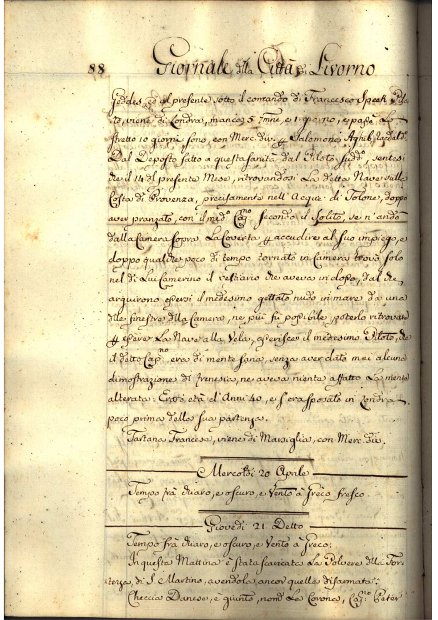 88 Giornale della Città di Livorno
Geddes, ed al presente sotto il comando di Francesco Speek
to, viene di Londra, manca 5 e 1 giorno, e passa lo
stretto 10 giorni sono, con Merc.
Dal Deposto fatto a questa sanità dal Piloto sudd.º, sentesi
che il 14 del presente Mese, ritrovandosi La detta Nave sulle
Coste di Provenza, precisamente nell' Acque di Tolone, doppo
aver pranzato, con il med.º Cap.no secondo il solito, se n' andò
dalla Camera sopra La Coverta accudire al suo impiego, e
doppo qualche poco di tempo tornato in Camera trovò solo
nel di Lui Camerino il vestiario che aveva in dosso, dal che
arguirono essersi il medesimo gettato nudo in mare da una
delle finestre della Camera, ne più fu possibile poterlo ritrovare
essere La Nave alla Vela, asserisce il medesimo Piloto, che
il detto Cap.no era di mente sana, senza aver dato mai alcuna
dimostrazione di frenesia, ne aveva nienta affatto La mente
alterata: Era età d' Anni 40, e s'era sposato in Londra
poco prima della sua partenza.
Tartana Francese, viene di Marsiglia, con Merc. div.
Mercoldì 20 Aprile
Tempo frà chiaro, e oscuro, e Vento à Greco fresco.
Giovedì 21 Detto
Tempo frà chiaro, e oscuro, e Vento à Greco.
In questa Mattina è stata scaricata La Polvere della For-
tezza, di S. Martino, avendola ancor quella disarmata.
Checcia Danese, è giunto, nom.ª La Corona, Cap.no Peter